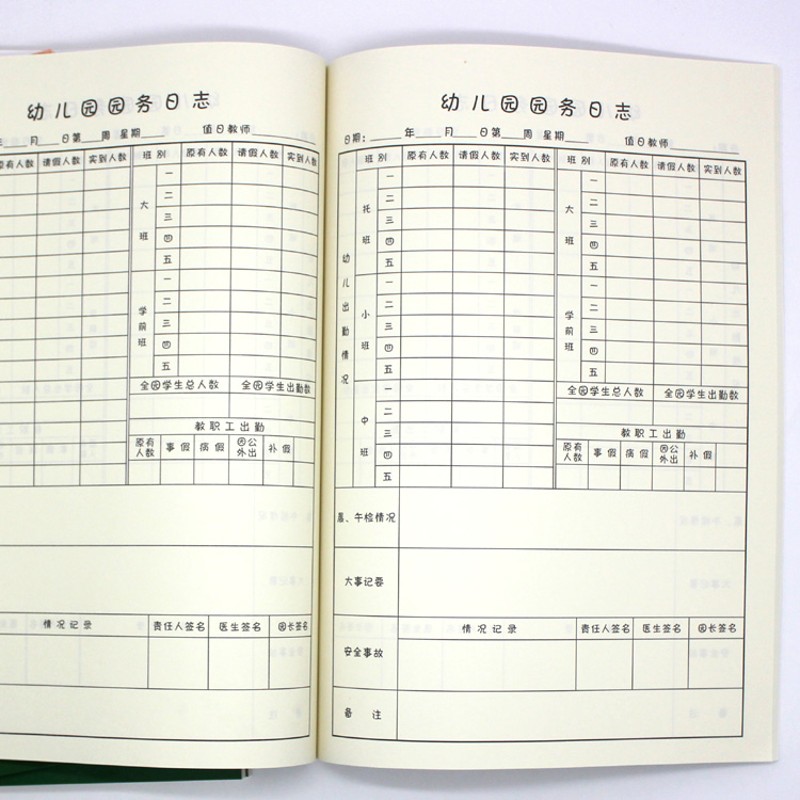 幼儿园园务日志
年 月 日第 周 星期 值日教师
原有人数 请假人数 实到人数 班别 原有人数 请假人数 实到人数
大班
一
二
三
四
五
学前班
一
二
三
四
五
全园学生总人数 全园学生出勤数
教职工出勤
原有人数 事假 病假 因公外出 补假
情况记录 责任人签名 医生签名 园长签名
幼儿园园务日志
日期: 年 月 日第 周 星期 值日教师
班别 原有人数 请假人数 实到人数 班别 原有人数 请假人数 实到人数
幼儿出勤情况
托班
一
二
三
四
五
小班
一
二
三
四
五
中班
一
二
三
四
五
大班
一
二
三
四
五
学前班
一
二
三
四
五
全园学生总人数 全园学生出勤数
教职工出勤
原有人数 事假 病假 因公外出 补假
晨、午检情况
大事记要
安全事故
情况记录 责任人签名 医生签名 园长签名
备注